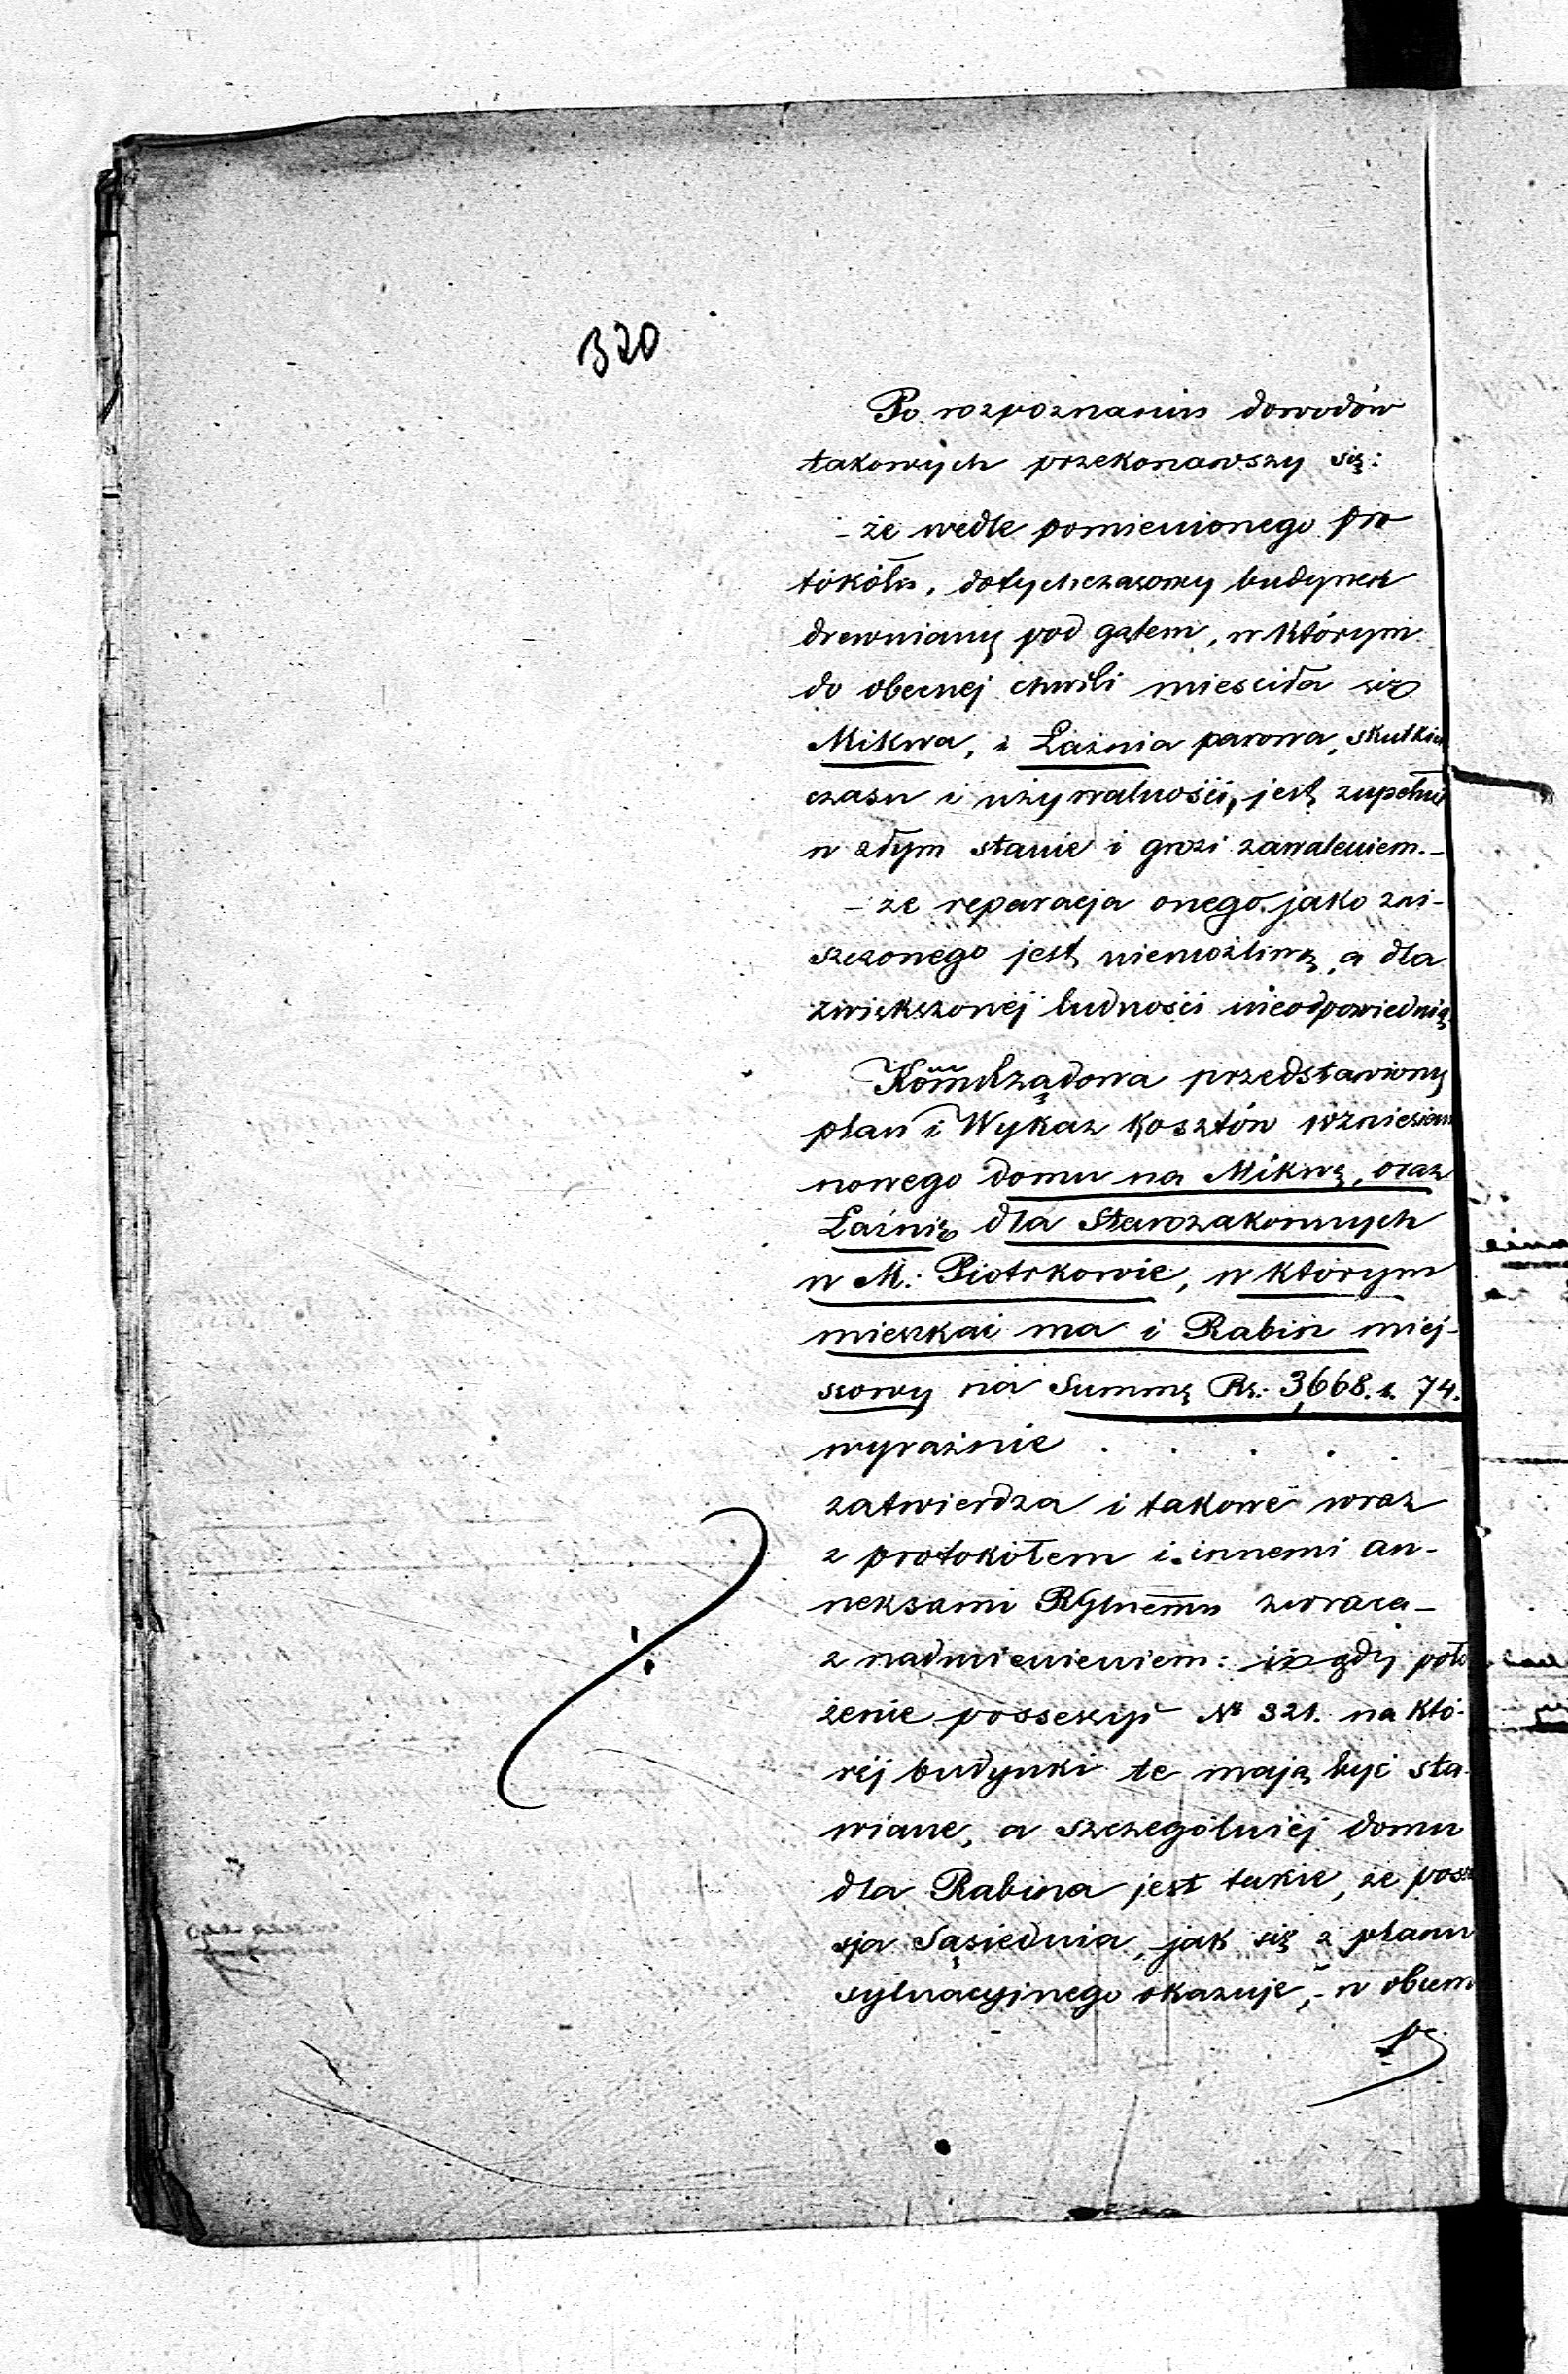 320
Po rozpoznaniu dowodów
takowych przekonawszy się:
– że wedle pomienionego pro
tokółu, dotychczasowy budynek
drewniany pod gątem, w którym
do obecnej chwili mieściła się
Mikwa, i Łaźnia parowa, skutkiem
czasu i używalności, jest zupełnie
w złym stanie i grozi zawaleniem.–
– że reparacja onego jako zni-
szczonego jest niemożliwą, a dla
zwiększonej ludności nieodpowiednią
Komm Rządowa przedstawiony
plan i Wykaz kosztów wzniesienia
nowego domu na Mikwę, oraz
Łaźnię dla Starozakonnych
w M: Piotrkowie, w którym
mieszkać ma i Rabin miej-
scowy na Summę Rs: 3,668. k. 74.
wyraźnie . . . . .
zatwierdza i takowe wraz
z protokółem i innemi an-
neksami RGlnemu zwraca –
z nadmienieniem: iż gdy poło
żenie possesyi № 321. na któ-
rej budynki te mają być sta-
wiane, a szczególniej domu
dla Rabina jest takie, że posse
sja Sąsiednia, jak się z planu
sytuacyjnego okazuje, – w